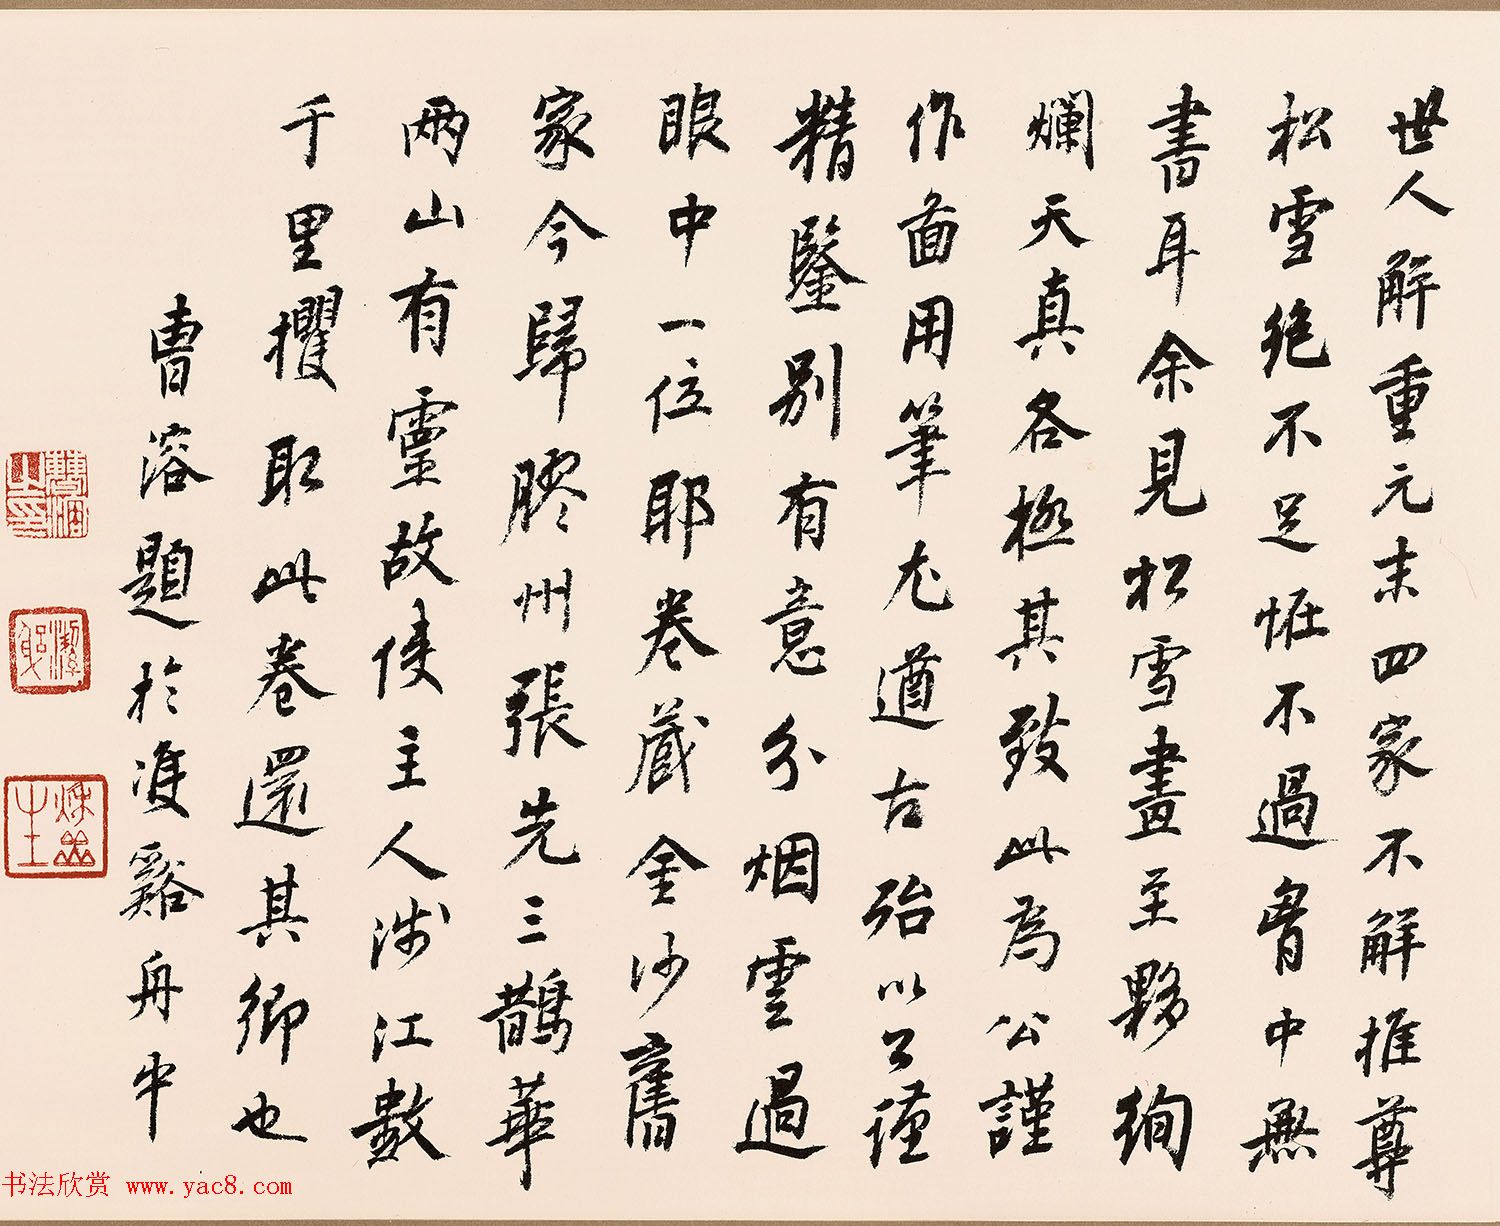 世人解重元末四家不解推尊
松雪絶不足恠不過胷中無
書耳余見松雪畫至夥絢
爛天真各極其致此為公謹
作啚用筆尤遒古殆以公謹
精鑒別有意分烟雲過
眼中一位耶卷藏金沙舊
家今歸膠州張先三鵲華
兩山有靈故使主人涉江數
千里攫取此卷還其鄉也
曹溶題於雙谿舟中
曹溶之印
潔躬
书法欣赏 www.yac8.com